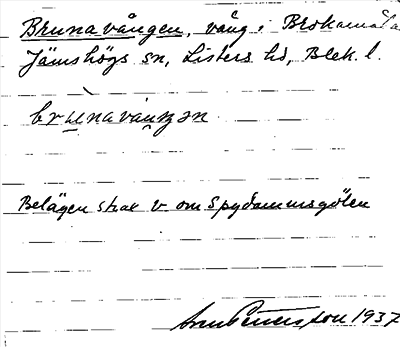 Brunavången, vång i Brokamåla
Jämshögs sn, Listers hd, Blek. l.
brunavåŋən
Belägen strax v om Spydammsgölen
1937